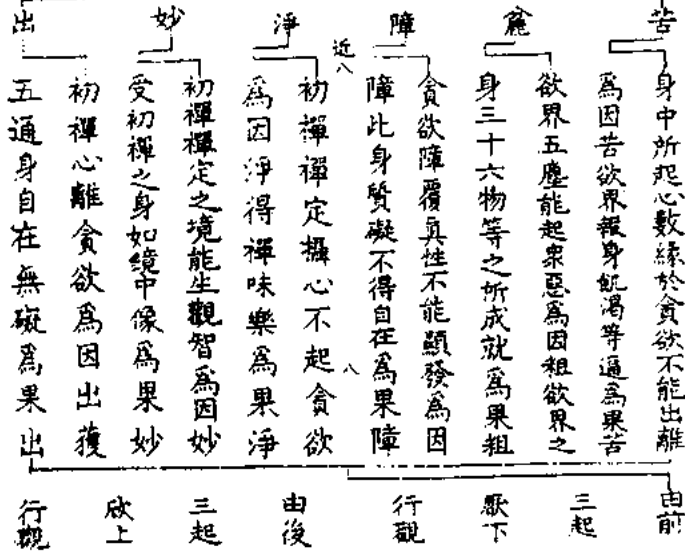 苦
身中所起心數緣於貪欲不能出離
為因苦欲界報身飢渴等逼為果苦
麄
欲界五塵能起眾惡為因粗欲界之
身三十六物等之所成就為果粗
障
貪欲障覆真性不能顯發為因
障此身質礙不得自在為果障
近八
淨
初禪禪定攝心不起貪欲
為因淨得禪味樂為果淨
八
妙
初禪禪定之境能生觀智為因妙
受初禪之身如鏡中像為果妙
出
初禪心離貪欲為因出獲
五通身自在無礙為果出
由前
三起
厭下
行觀
由後
三起
欣上
行觀